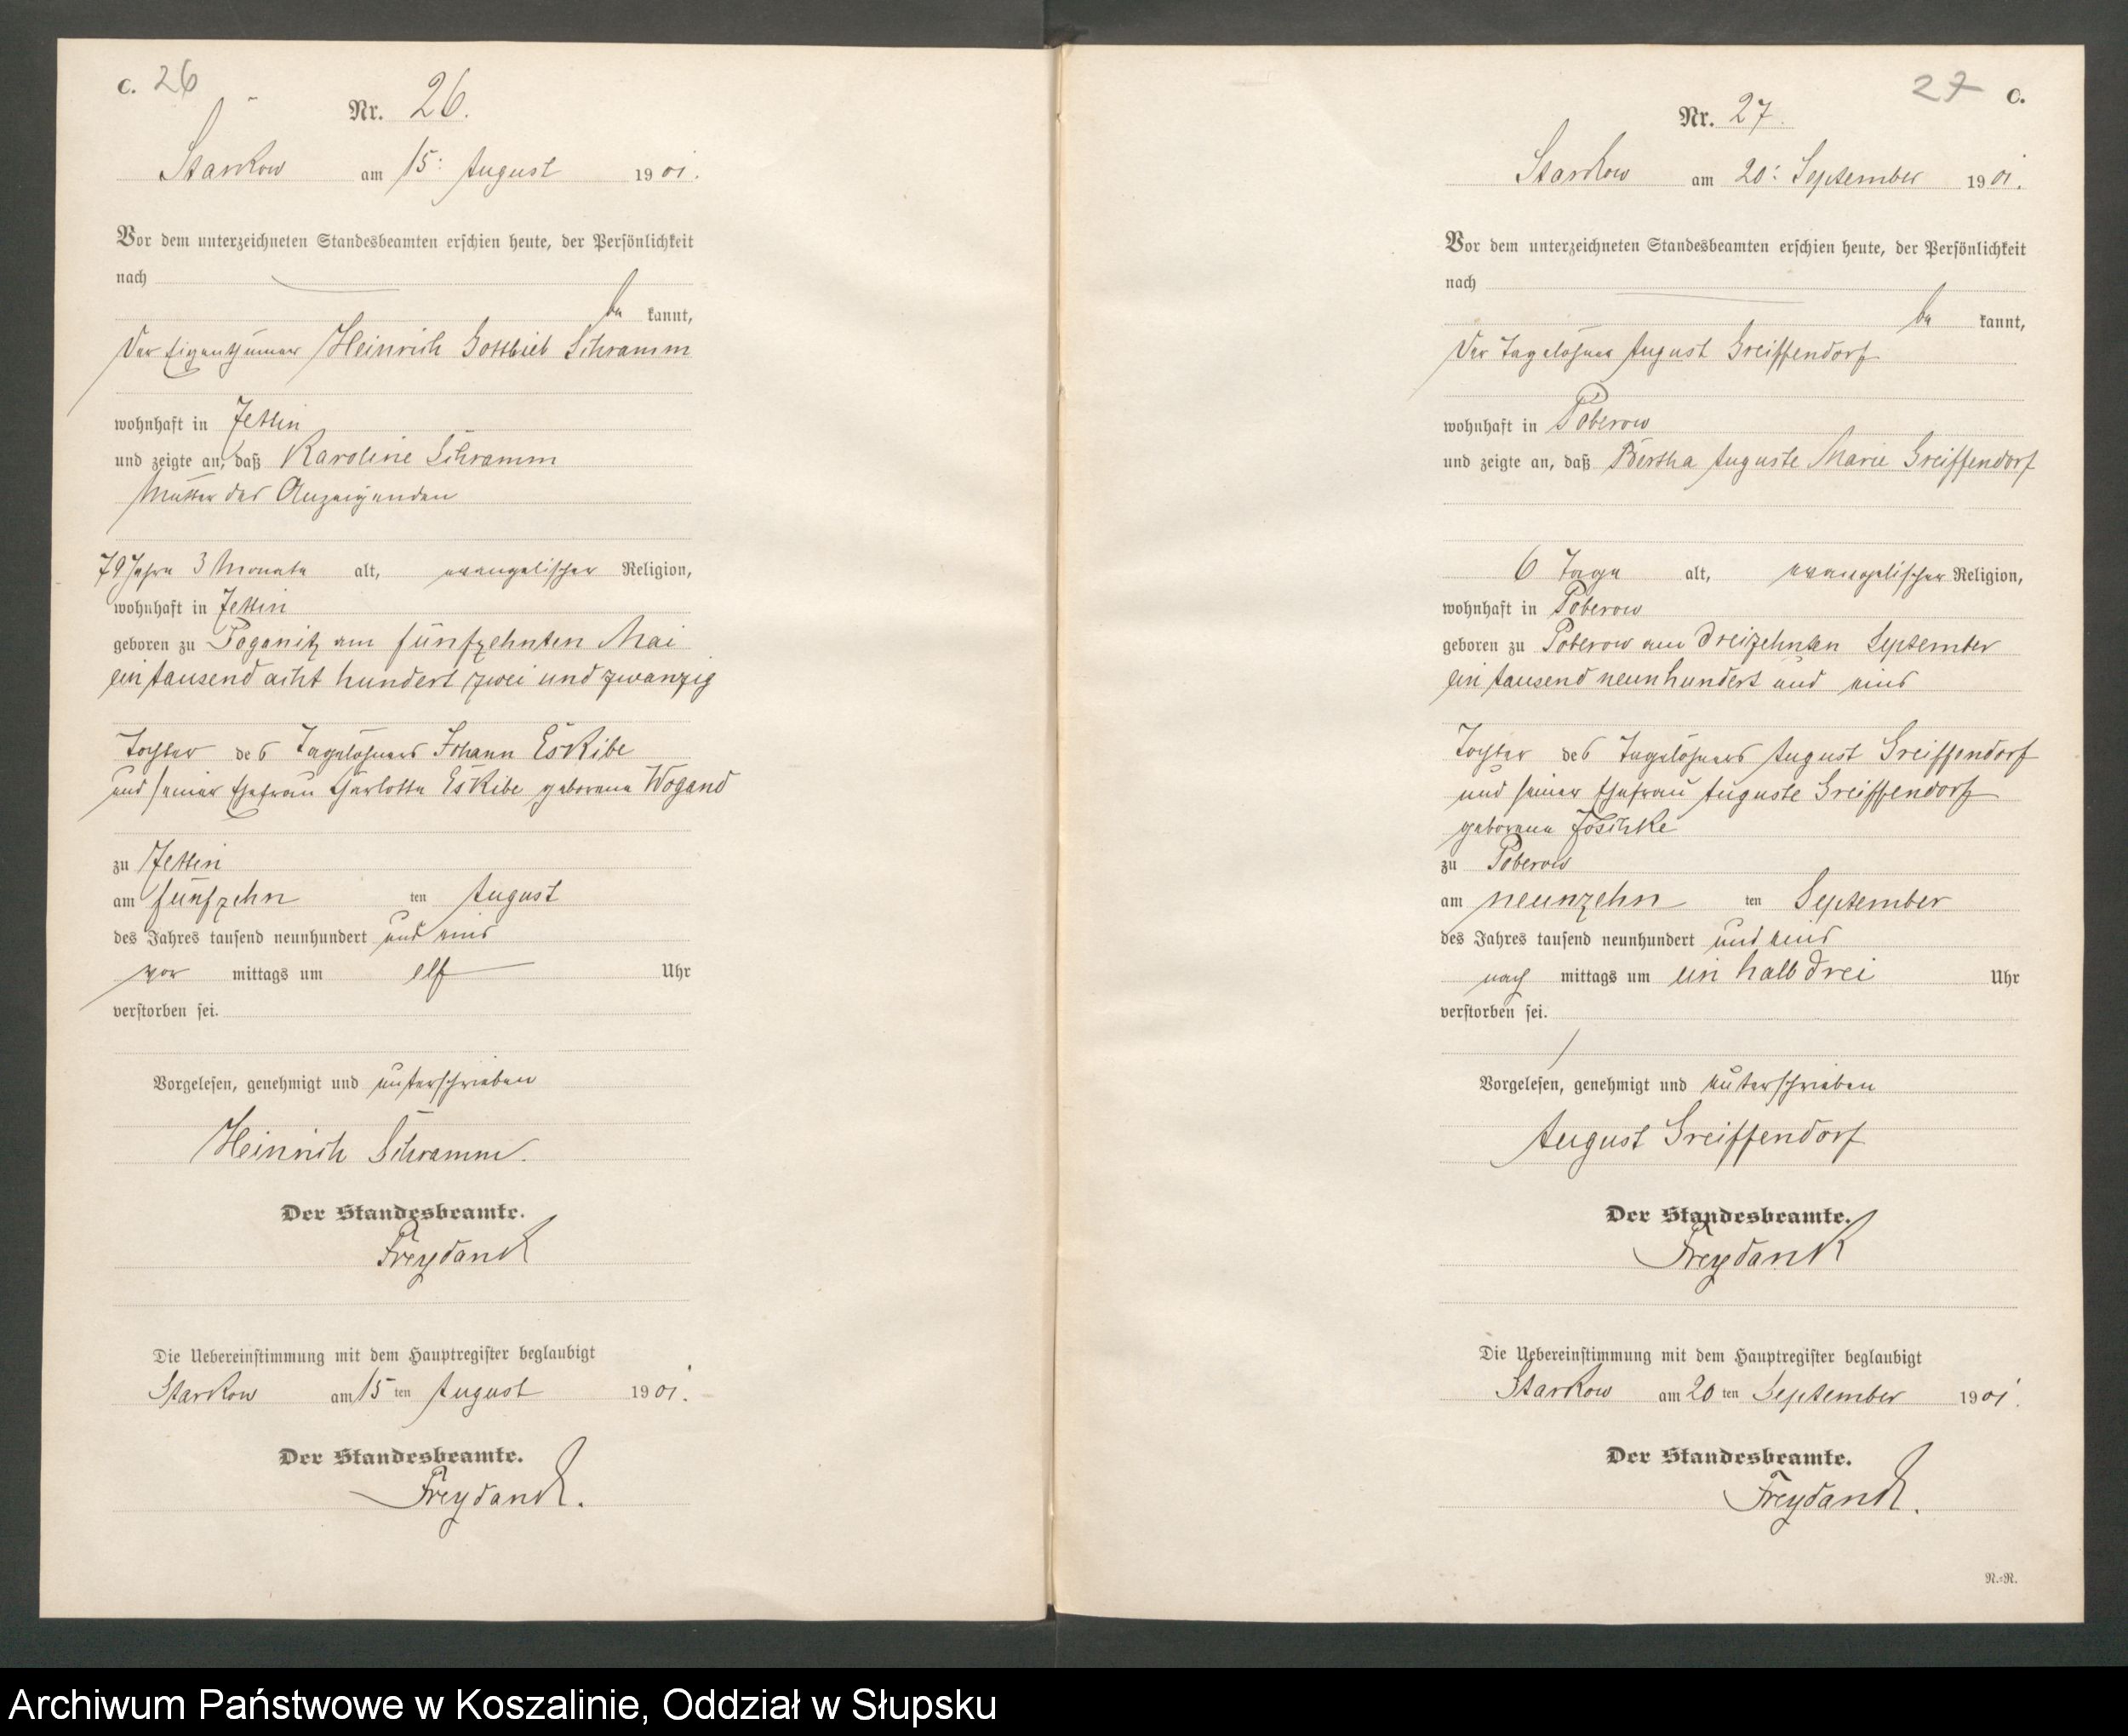 C. 26
Nr. 26.
Starkow am 15: August 1901.
Vor dem unterzeichneten Standesbeamten erschien heute, der Persönlichkeit
nach
be kannt,
der Eigenthümer Heinrich Gottlieb Schramm
wohnhaft in Jettin
und zeigte an, daß Karoline Schramm
Mutter des Anzeigenden
79 Jahre 3 Monate alt, evangelischer Religion,
wohnhaft in Jettin
geboren zu Poganitz am fünfzehnten Mai
ein tausend acht hundert zwei und zwanzig
Tochter des Tagelöhners Johann Eskibe
und seiner Ehefrau Charlotte Eskibe geborene Wogand
zu Jettin
am fünfzehn ten August
des Jahres tausend neunhundert und eins
vor mittags um elf Uhr
verstorben sei.
Vorgelesen, genehmigt und unterschrieben
Heinrich Schramm.
Der Standesbeamte.
Freydank
Die Uebereinstimmung mit dem Hauptregister beglaubigt
Starkow am 15 ten August 1901.
Der Standesbeamte.
Freydank.
27 C.
Nr. 27.
Starkow am 20: September 1901.
Vor dem unterzeichneten Standesbeamten erschien heute, der Persönlichkeit
nach
be kannt,
der Tagelöhner August Greiffendorf
wohnhaft in Poberow
und zeigte an, daß Bertha Auguste Marie Greiffendorf
6 Tage alt, evangelischer Religion,
wohnhaft in Poberow
geboren zu Poberow am dreizehnten September
ein tausend neunhundert und eins
Tochter des Tagelöhners August Greiffendorf
und seiner Ehefrau Auguste Greiffendorf
geborene Joschke
zu Poberow
am neunzehn ten September
des Jahres tausend neunhundert und eins
nach mittags um ein halb drei Uhr
verstorben sei.
Vorgelesen, genehmigt und unterschrieben
August Greiffendorf
Der Standesbeamte.
Freydank
Die Uebereinstimmung mit dem Hauptregister beglaubigt
Starkow am 20 ten September 1901.
Der Standesbeamte.
Freydank.
N.=N.
Archiwum Państwowe w Koszalinie, Oddział w Słupsku